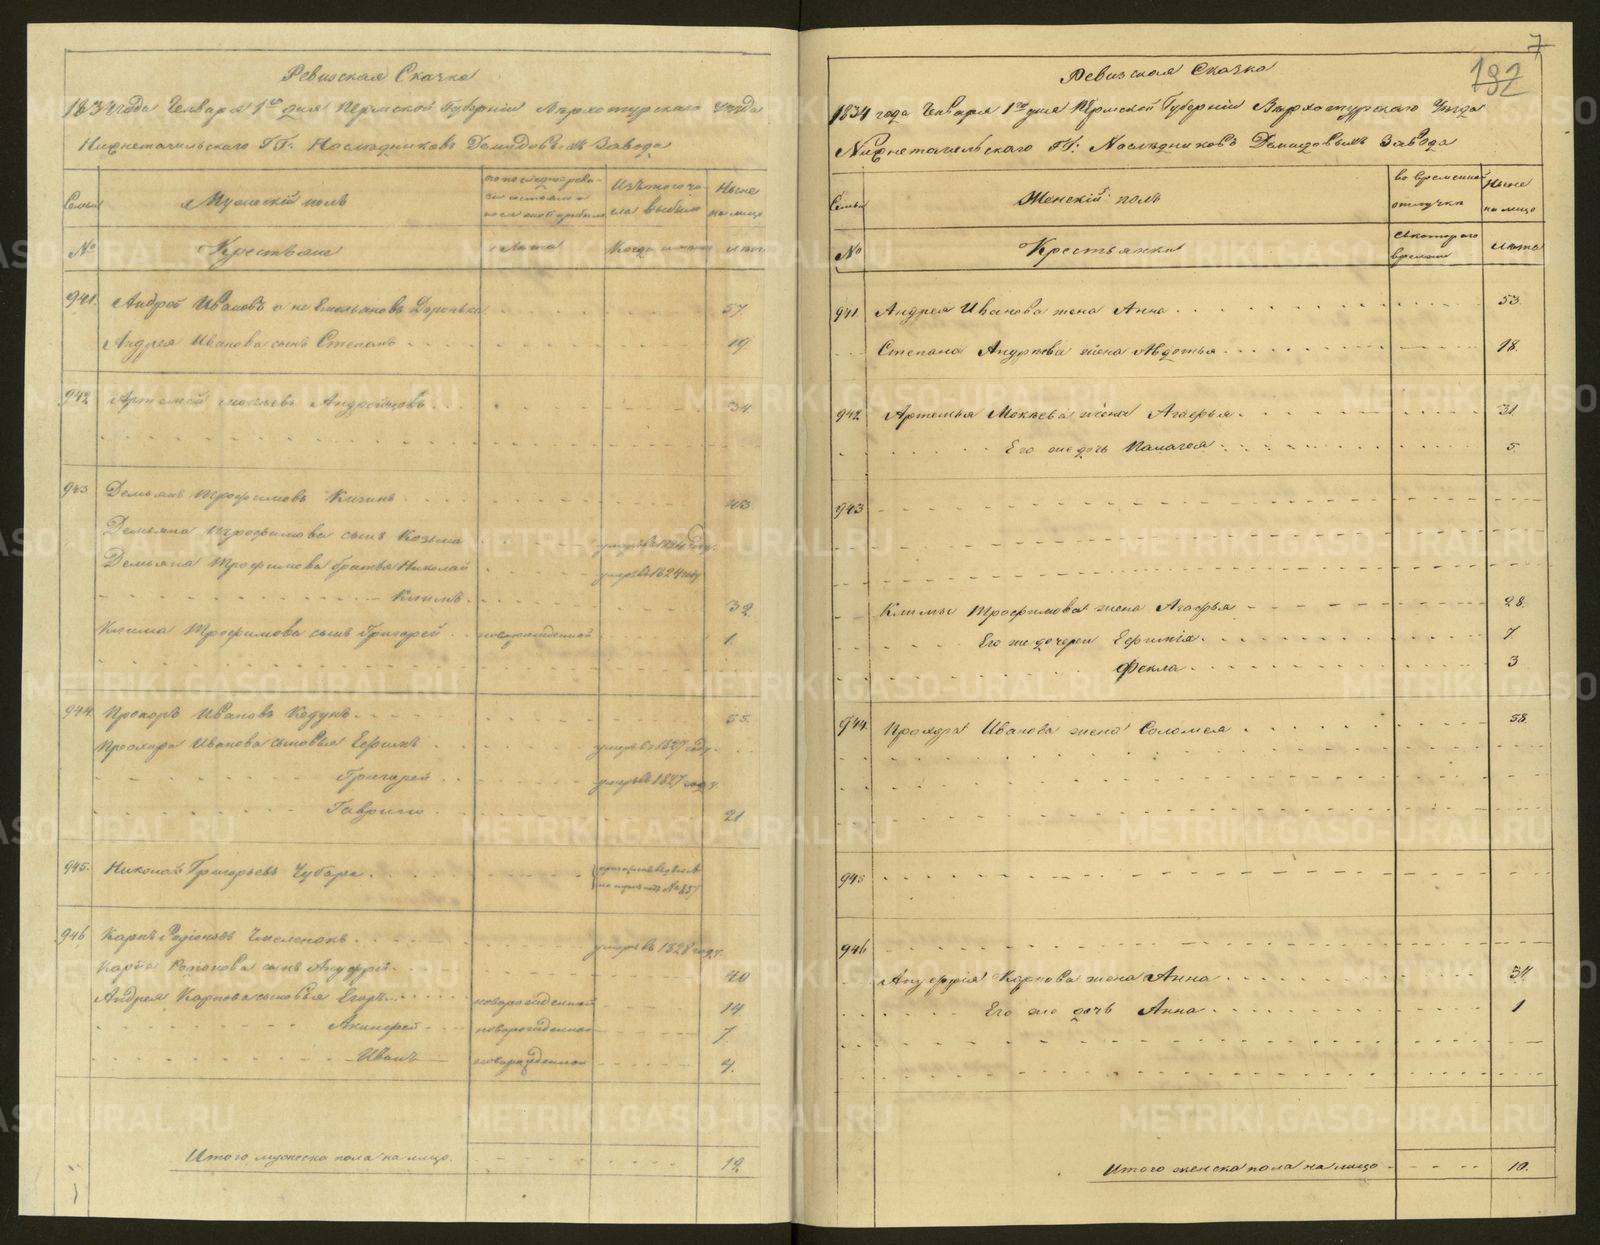 Ревизская Сказка
1834 года Генваря 1го дня Пермской Губернiи Верхотурского Уѣзда
Нижнетагильского ГГ: Наслѣдниковъ Демидовыхъ Завода
Семьи
Мужескiй полъ
по последней ревизiи состояло и после оной прибыло
Изъ того числа выбыло
Ныне на лицо
№
Крестьяне
Лета
Когда имянно
лета
941.
Андрей Ивановъ
57
Андрея Иванова сынъ Степанъ
19
942
Артемей Мокеевъ Андрейцовъ
34.
943
Демьянъ Трофимовъ Кизинъ
43
Демьяна Трофимова сынъ Козьма
умеръ въ 1824 году.
Демьяна Трофимова братья Николай
умеръ въ 1824 году
Климъ
32
Клима Трофимова сынъ Григорей
новорожденной
1.
944
Прохоръ Ивановъ Кодунъ
55.
Прохора Иванова сыновья Ефимъ
умеръ въ 1827 году.
Григорей
умеръ въ 1827 году
Гаврило
21
945.
Николай Григорьевъ Чубара
946
Карпъ Родiоновъ Численокъ
умеръ въ 1828 году
Карпа Родiонова сынъ Ануфрей
40
Андрея Карпова сыновья Егоръ
новорожденной
14
Акинфей
новорожденной
7
Иванъ
новорожденной
4.
Итого мужеска пола на лицо.
12
7
192
Ревизская Сказка
1834 года Генваря 1го дня Пермской Губернiи Верхотурского Уѣзда
Нижнетагильского ГГ: Наслѣдниковъ Демидовыхъ Завода
Семьи
Женскiй полъ
во временной отлучки
Ныне на лицо
№
Крестьянки
съ котораго времени
лета
941
Андрея Иванова жена Анна
53
Степана Андреева жена Авдотья
18.
942
Артемья Мокеева жена Агафья
31
Его же дочь Палагея
5
943
Климы Трофимова жена Агафья
28.
Его же дочери Ефимiя
7
Фекла
3
944
Прохора Иванова жена Соломея
58.
945
946
Ануфрiя Карпова жена Анна
34
Его же дочь Анна
1
Итого женска пола на лицо
10.
METRIKI.GASO-URAL.RU